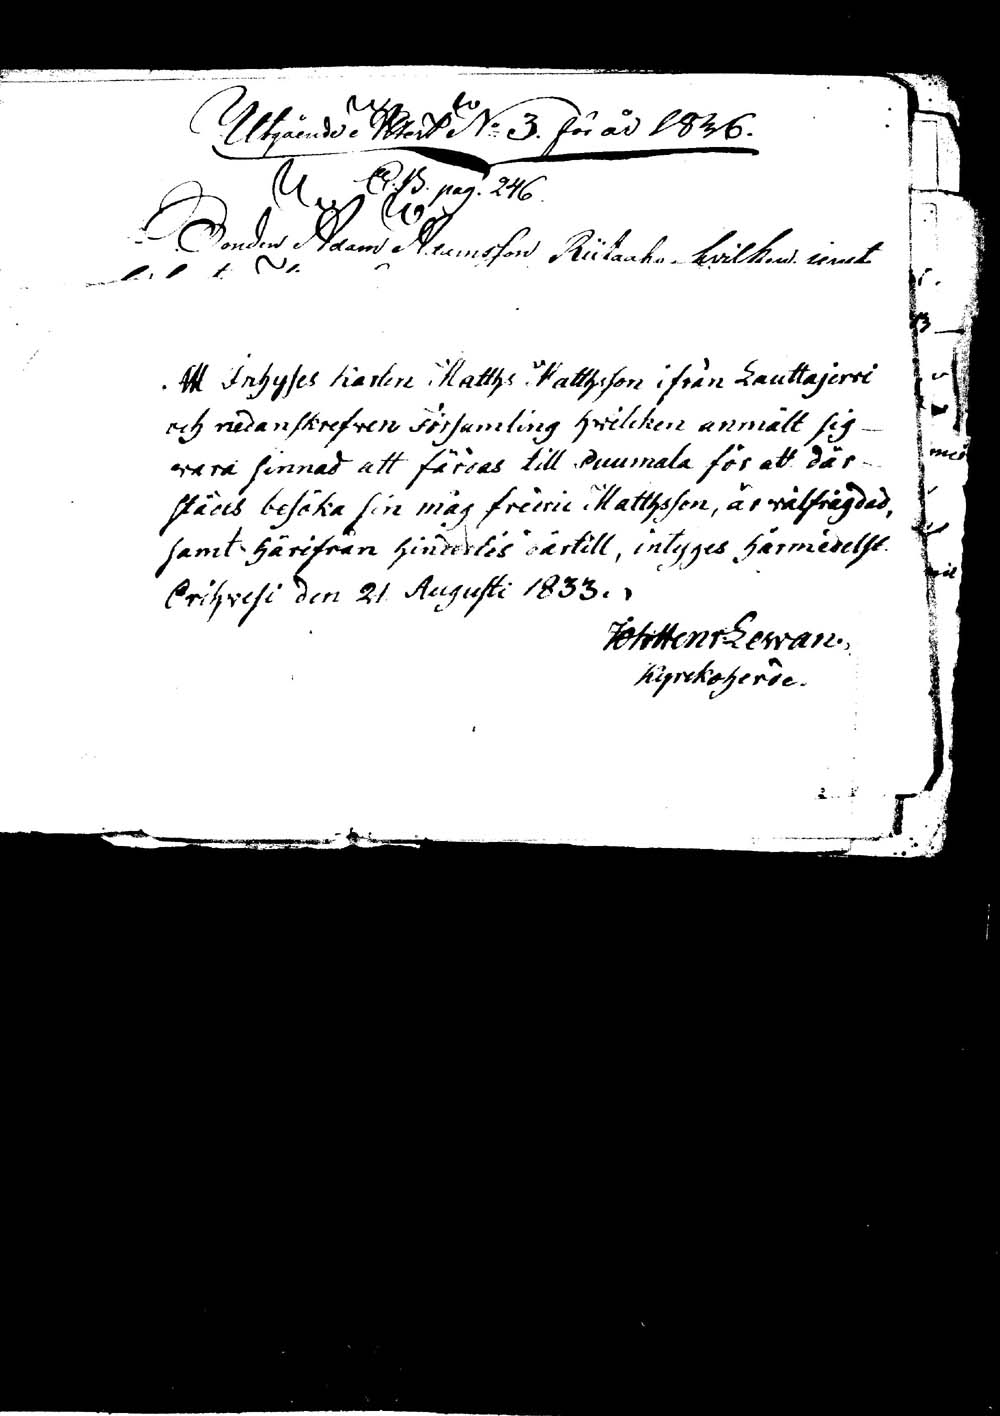 Utgående Attest No 3. för år 1836.
C. B. pag. 246.
Bonden Adam Adamsson Riikaaho hvilken
At Inhyses karlen Matths Matthsson ifrån Lauttajerwi
och nedanskrefven Församling hwilcken anmält sig
wara sinnad att färdas till Puumala för att där
städes besöka sin måg Matthsson, är wälfrägdad,
samt härifrån hinderlös därtill, intyges härmedelst.
Crihwesi den 21 Augusti 1833.
Joh Henr Lewan.
Kyrckoherde.